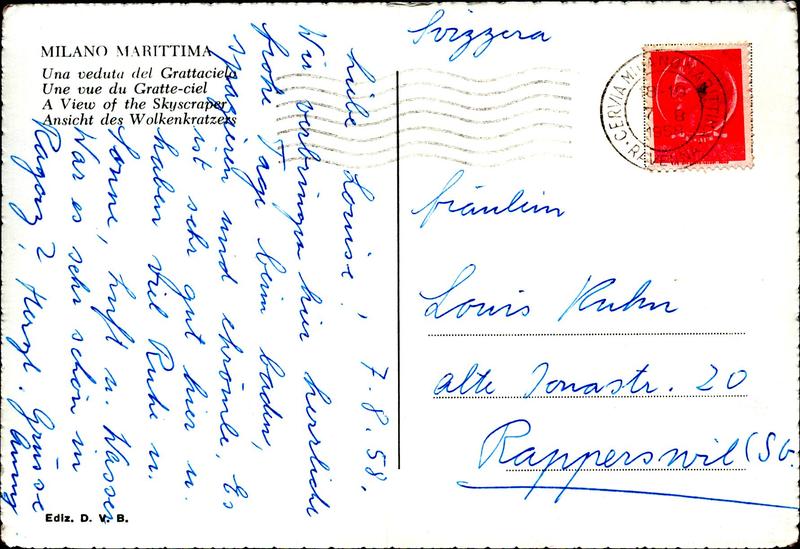 MILANO MARITTIMA
Una veduta del Grattacielo
Une vue du Gratte-ciel
A View of the Skyscraper
Ansicht des Wolkenkratzers
Liebe Louise! 7.8.58.
Wir verbringen hier herrliche
frohe Tage beim baden,
spazieren und chrömle. Es
ist sehr gut hier u.
haben viel Ruhe u.
Sonne, Luft u. Wasser
War es sehr schön in
Ragaz? Herzl. Grüsse
Ediz. D. V. B.
Svizzera
CERVIA MILANO MARITTIMA
RAVENNA
Fräulein
Louis Kuhn
alte Jonastr. 20
Rapperswil (SG.